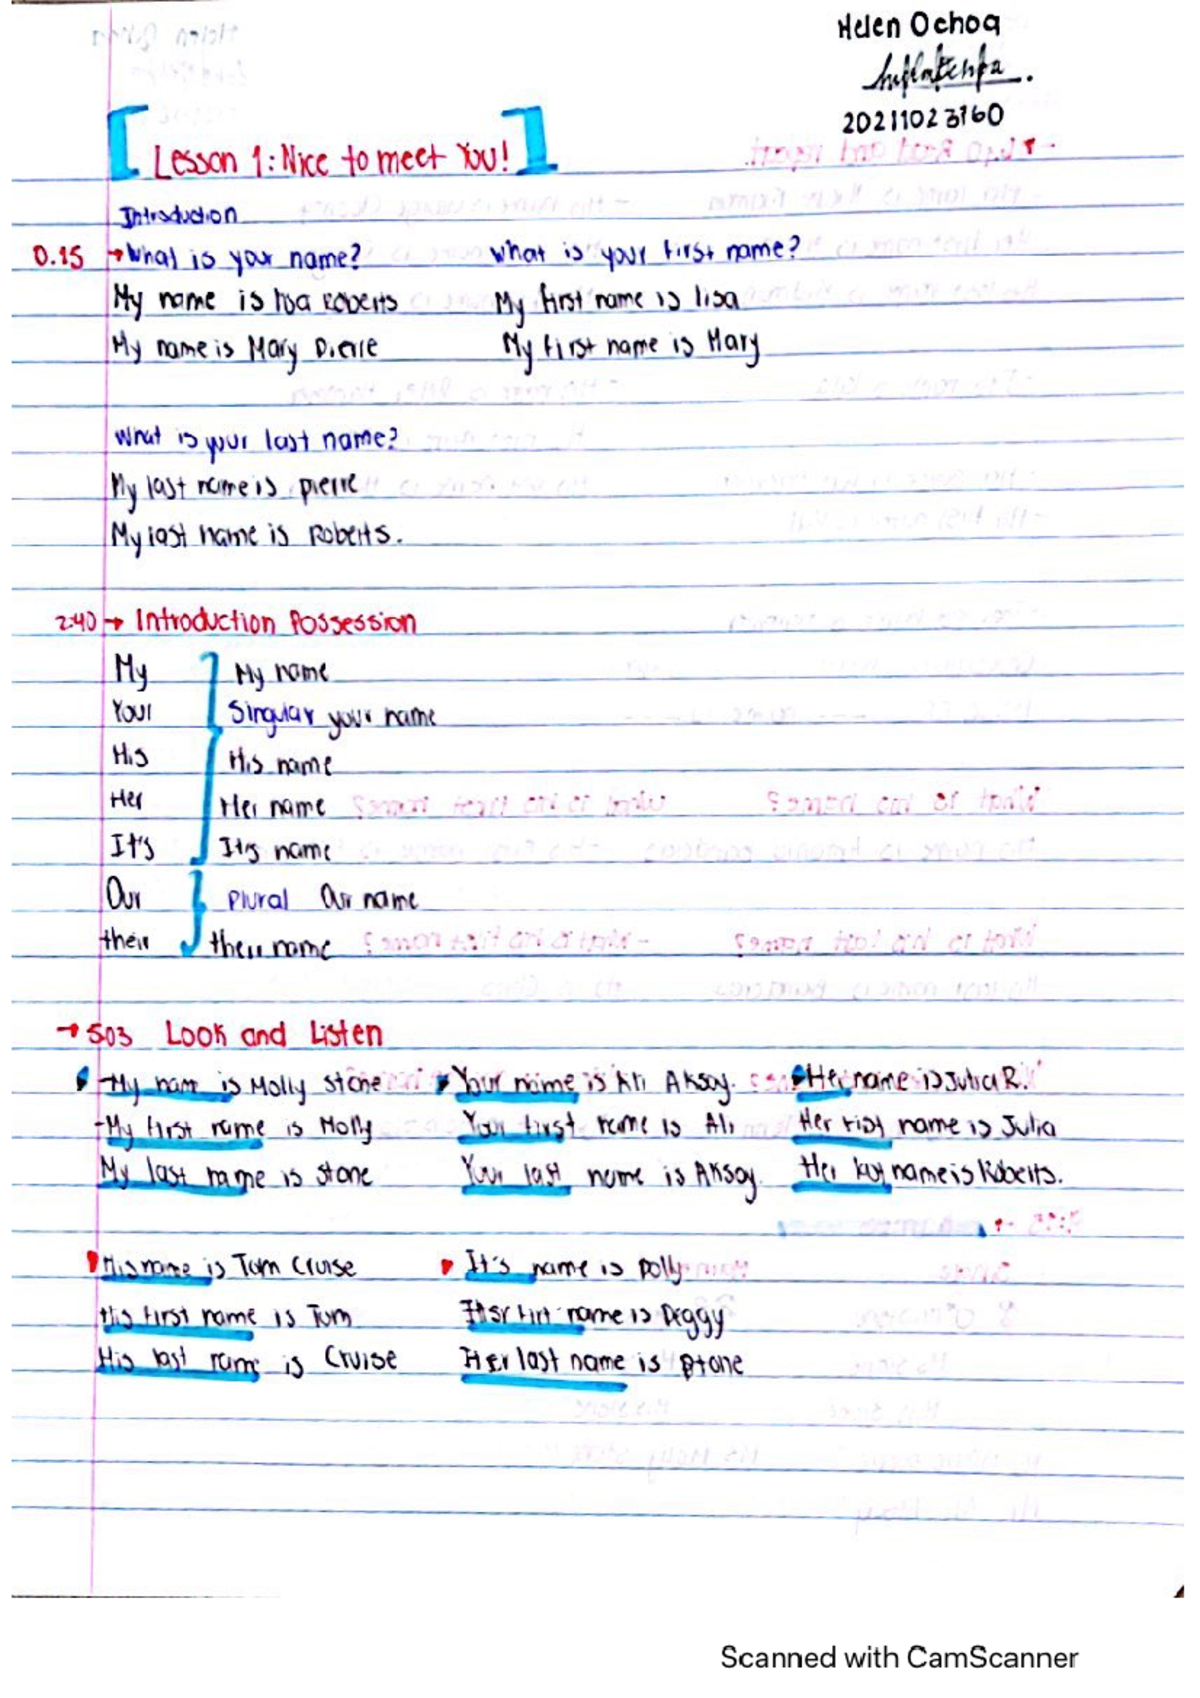 Helen Ochoa
20211023160
Lesson 1: Nice to meet You!
Introduction
0.15 → What is your name? What is your first name?
My name is Roberts My first name is lisa
My name is Mary Pierre My first name is Mary
What is your last name?
My last name is pierre
My last name is Roberts.
2:40 → Introduction Possession
My My name
Your Singular your name
His His name
Her Her name
It's It's name
Our Plural Our name
their their name
→ 5:03 Look and Listen
- My name is Molly Stone Your name is Ali Aksoy. Her name is Julia R.
- My first name is Molly Your first name is Ali Her first name is Julia
My last name is stone Your last name is Aksoy. Her last name is Roberts.
His name is Tom Cruise It's name is polly
His first name is Tom name is Peggy
His last name is Cruise last name is Stone
Scanned with CamScanner